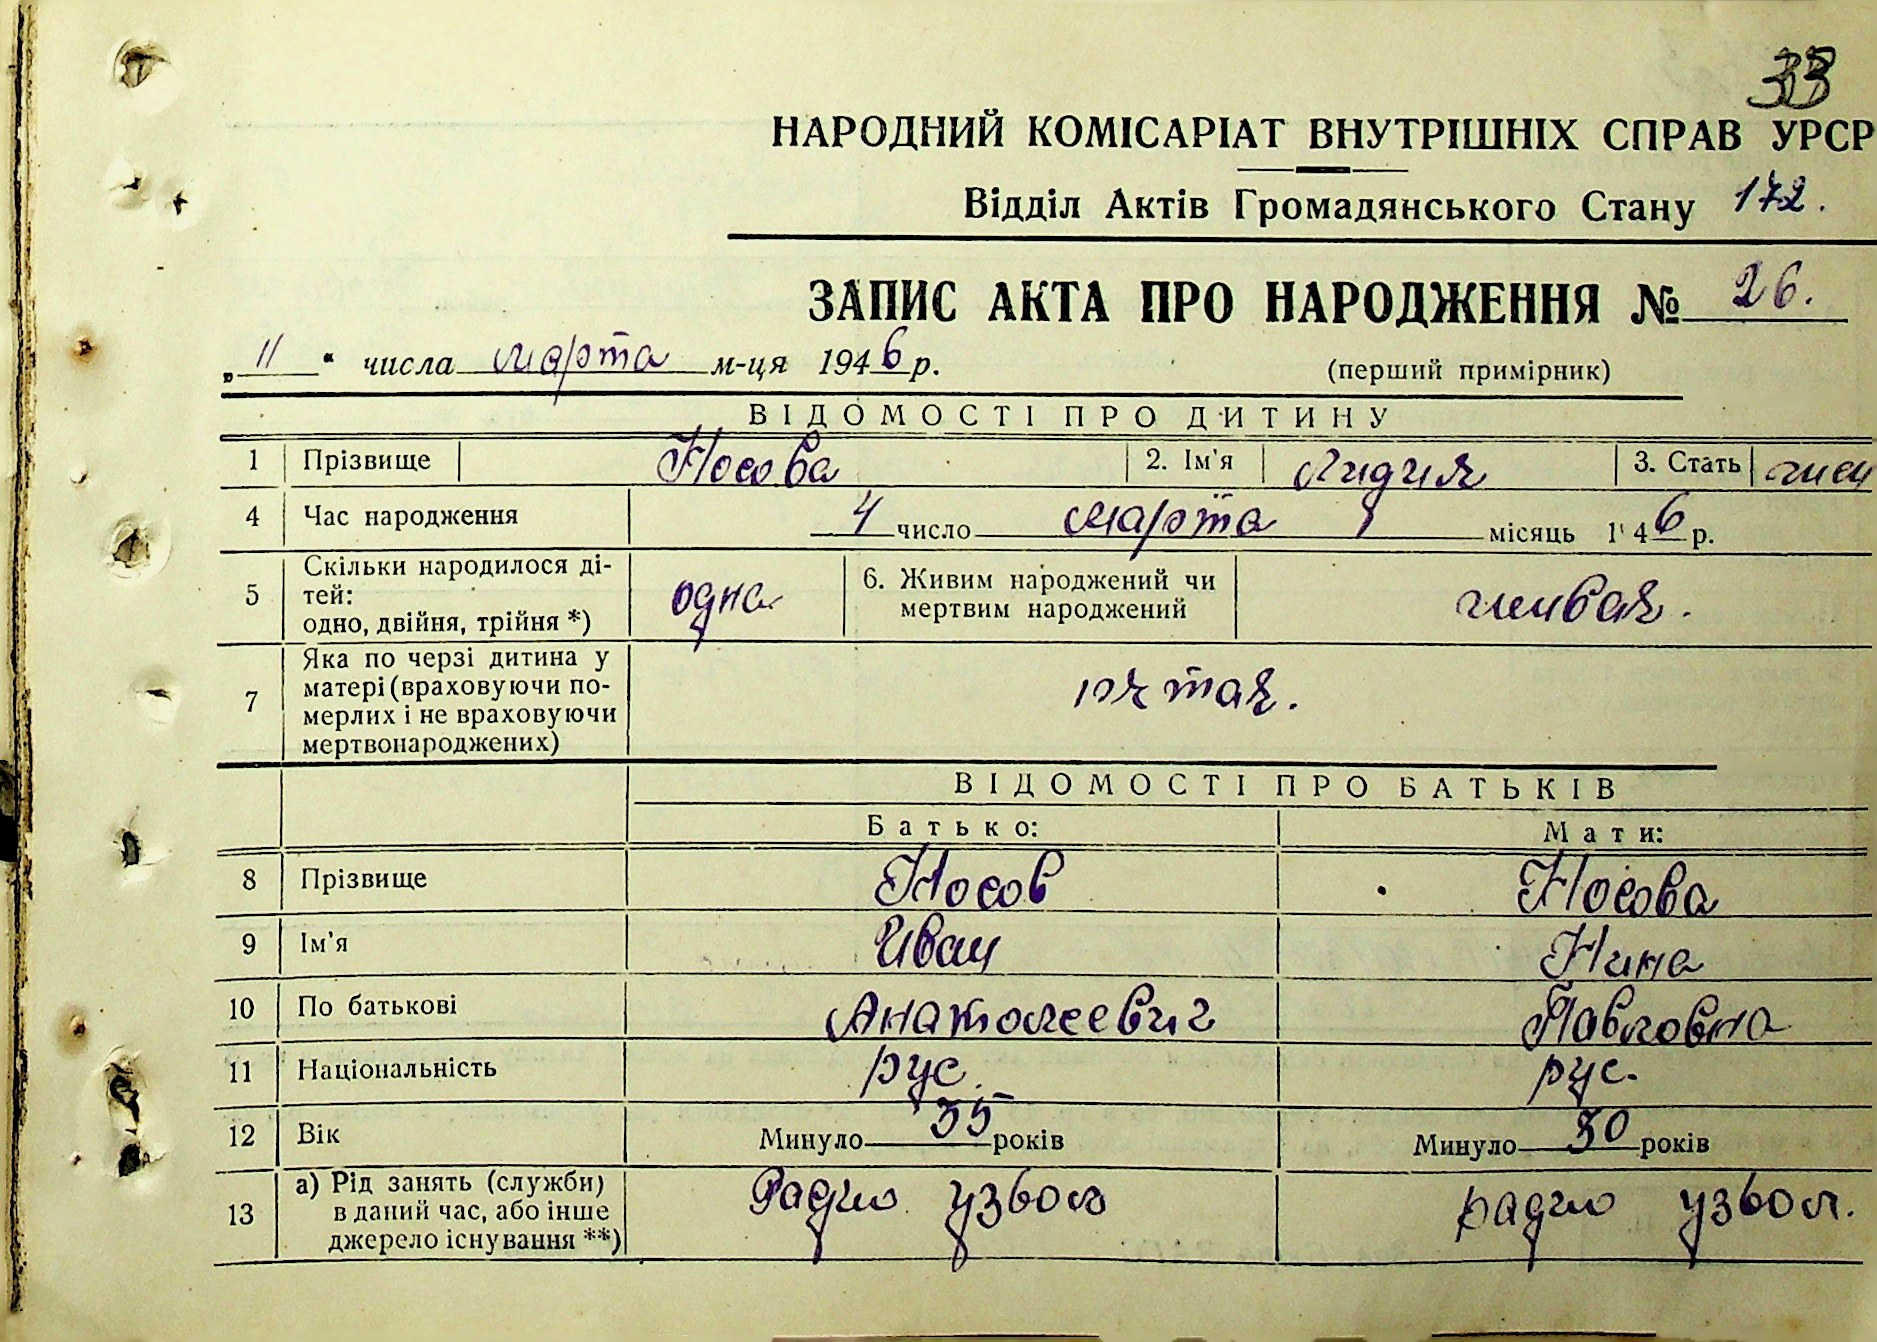 33
НАРОДНИЙ КОМІСАРІАТ ВНУТРІШНІХ СПРАВ УРСР
Відділ Актів Громадянського Стану 172.
ЗАПИС АКТА ПРО НАРОДЖЕННЯ № 26.
„11“ числа марта м-ця 1946 р. (перший примірник)
ВІДОМОСТІ ПРО ДИТИНУ
1 Прізвище Носова 2. Ім'я Лидия 3. Стать жен
4 Час народження 4 число марта місяць 1946 р.
5 Скільки народилося ді-
тей:
одно, двійня, трійня *) одна 6. Живим народжений чи
мертвим народжений живая.
7 Яка по черзі дитина у
матері (враховуючи по-
мерлих і не враховуючи
мертвонароджених) пятая.
ВІДОМОСТІ ПРО БАТЬКІВ
Батько: Мати:
8 Прізвище Носов Носова
9 Ім'я Иван Нина
10 По батькові Анатолеевич Павловна
11 Національність рус. рус.
12 Вік Минуло 35 років Минуло 30 років
13 а) Рід занять (служби)
в даний час, або інше
джерело існування **) Радио узвол радио узвол.